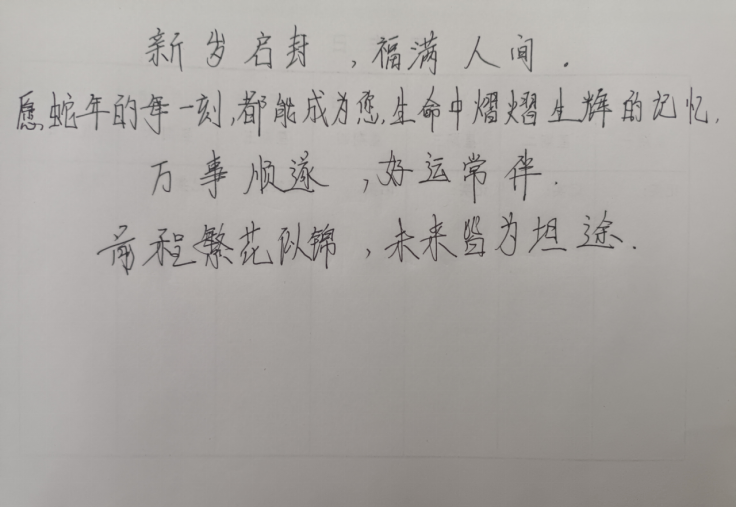 新岁启封,福满人间.
愿蛇年的每一刻,都能成为您,生命中熠熠生辉的记忆,
万事顺遂,好运常伴.
前程繁花似锦,未来皆为坦途.